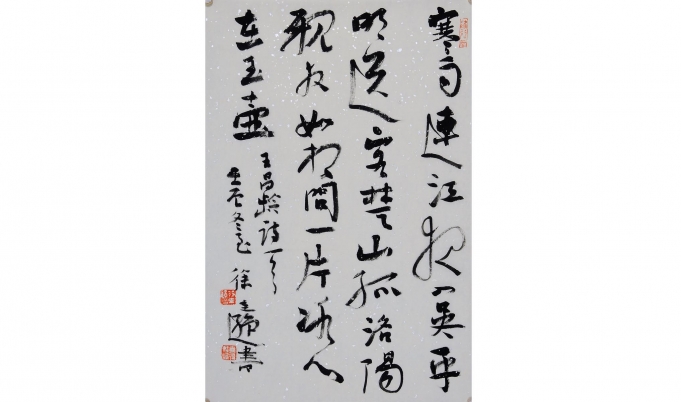 寒雨連江夜入吳平
明送客楚山孤洛陽
親友如相問一片冰心
在玉壺
王昌齡詩一首
壬辰冬 徐 書